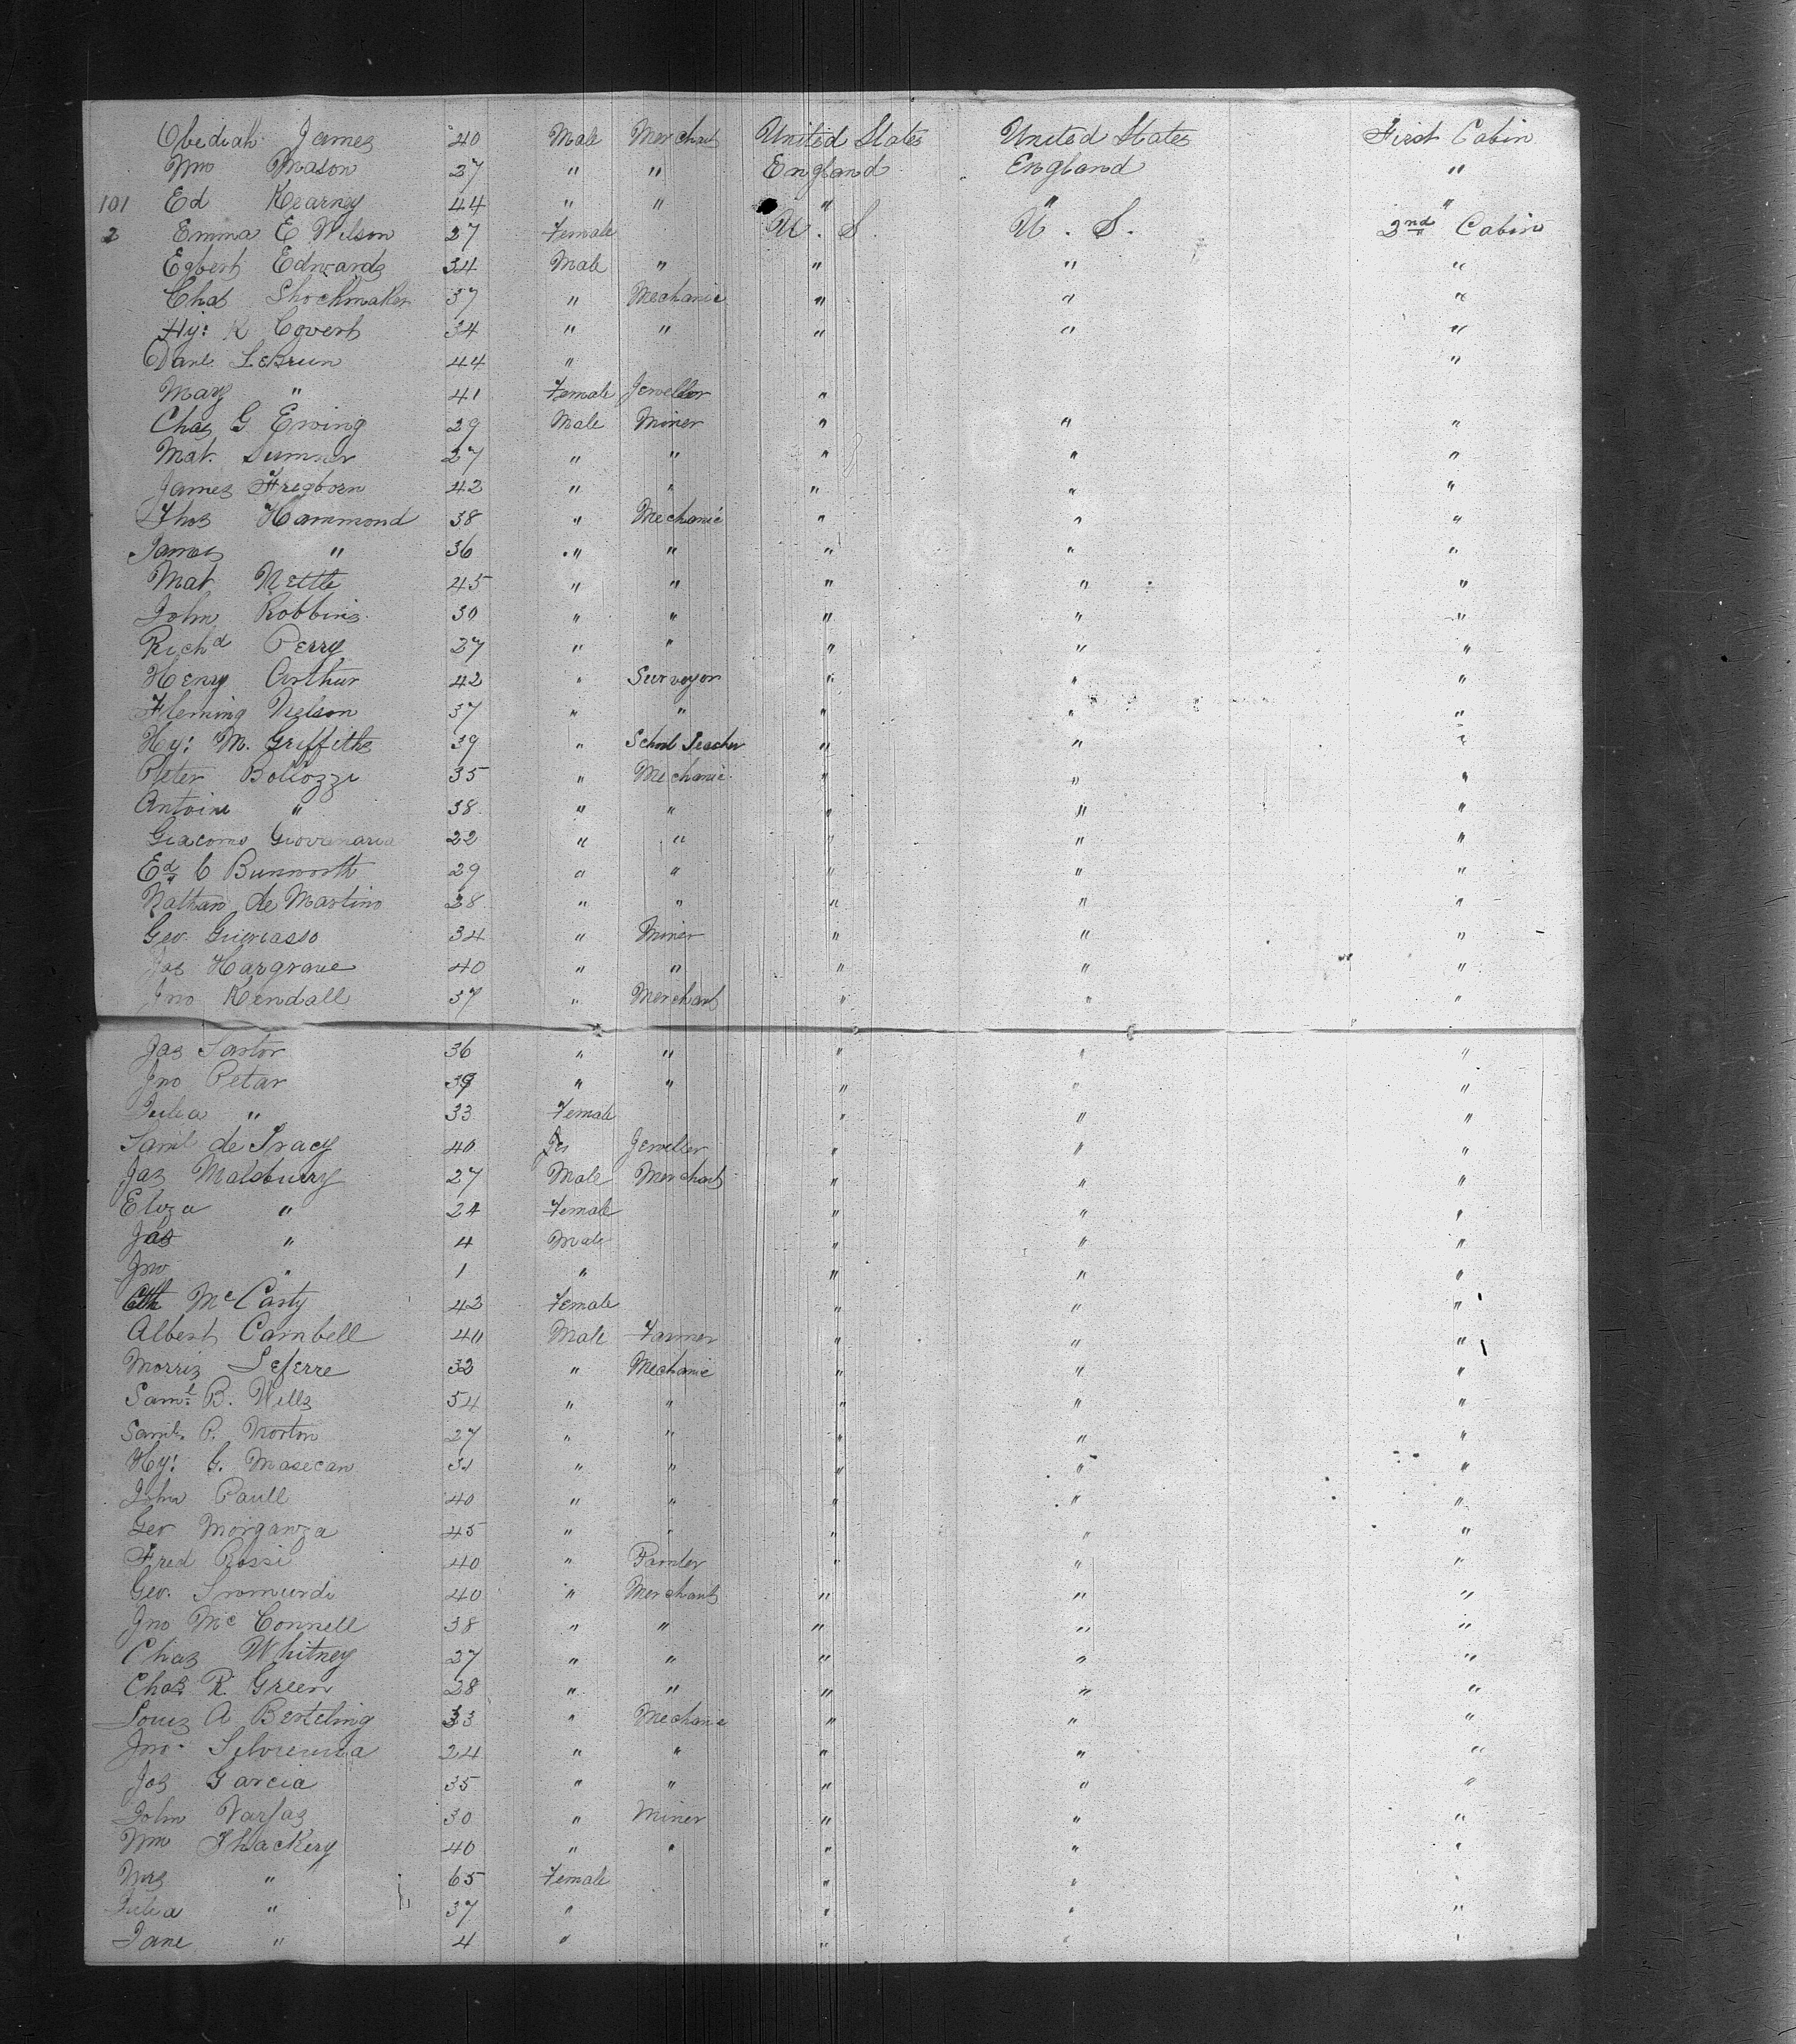 Obediah James 40 Male Merchant United States United States First Cabin
Wm Mason 27 " " England England "
101 Ed Kearney 44 " " " " "
2 Emma E Wilson 27 Female U. S. U. S. 2nd Cabin
Egbert Edwards 34 Male " " " "
Chas Shockmaker 37 " Mechanic " " "
Hy: K Covert 34 " " " " "
Danl LeBrun 44 " "
Mary " 41 Female Jeweller " "
Chas G Ewing 29 Male Miner " " "
Mat. Sumner 27 " " " " "
James Freeborn 42 " " " " "
Thos Hammond 38 " Mechanic " " "
James " 36 " " " " "
Mat Nettle 45 " " " " "
John Robbins 30 " " " " "
Richd Perry 27 " " " " "
Henry Arthur 42 " Surveyor " " "
Fleming Nelson 37 " " " " "
Hy: M. Griffiths 39 " School Teacher " " "
Peter Boliozzi 35 " Mechanic " " "
Antoine " 38 " " " " "
Giacomo Giovanaria 22 " " " " "
Ed C Bunworth 29 " " " " "
Nathan de Martino 28 " " " " "
Geo. 34 " Miner " " "
Jas Hargrave 40 " " " " "
Jno Kendall 37 " Merchant " " "
Jas Sartor 36 " " " " "
Jno Petar 39 " " " " "
Julia " 33 Female " " "
Saml de Tracy 40 Jeweller " " "
Jas Malsbury 27 Male Merchant " " "
Eliza " 24 Female " " "
Jas " 4 Male " " "
Jno " 1 " " " "
McCarty 42 Female " " "
Albert Cambell 40 Male Farmer " " "
Morris Leferre 32 " Mechanic " " "
Saml B. Wells 54 " " " " "
Saml. P. Morton 27 " " " " "
Hy: G. Masecan 31 " " " " "
John Paull 40 " " " " "
Geo Morganza 45 " " " " "
Fred Rossi 40 " Painter " " "
Geo. 40 " Merchant " " "
Jno McConnell 38 " " " " "
Chas Whitney 27 " " " " "
Chas R. Green 28 " " " " "
Louis A Berteling 33 " Mechanic " " "
Jno. 24 " " " " "
Jos Garcia 35 " " " " "
John Varjas 30 " Miner " " "
Wm Thackery 40 " " " " "
Mrs " 65 Female " " "
Julia " 37 " " " "
Jane " 4 " " " "